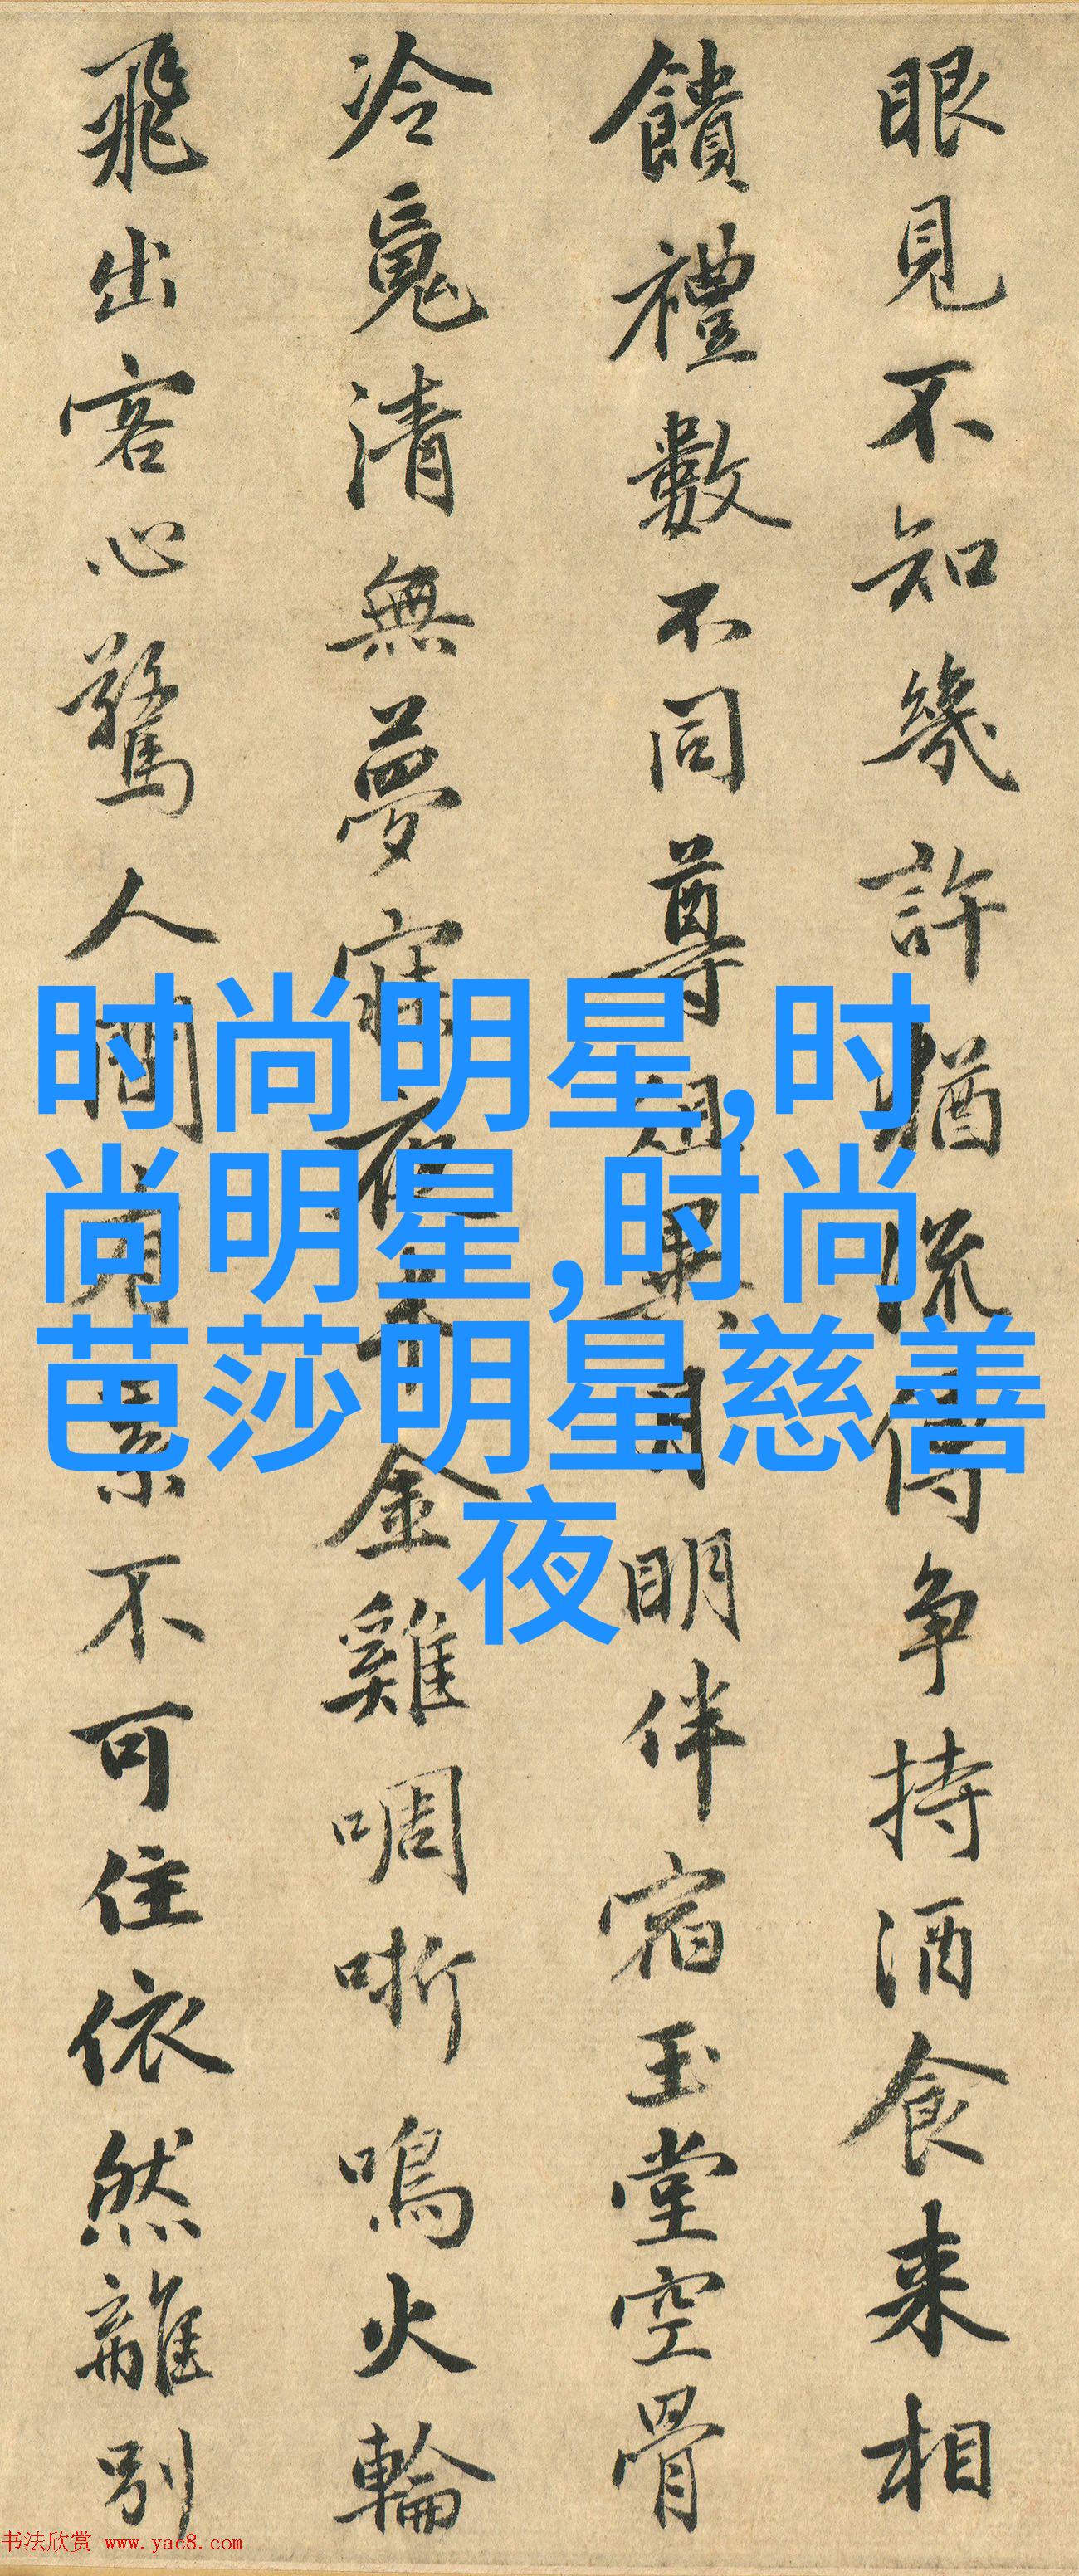 眼見不知幾許猶流傳争持酒食来相
饋禮數不同尊俎異月明伴宿玉堂空骨
冷魂清無夢寐夜半金雞啁哳鳴火輪
飛出客心驚人間有累不可住依然離別
时尚明星,时
尚明星,时尚
芭莎明星慈善
夜
书法欣赏 www.yac8.com